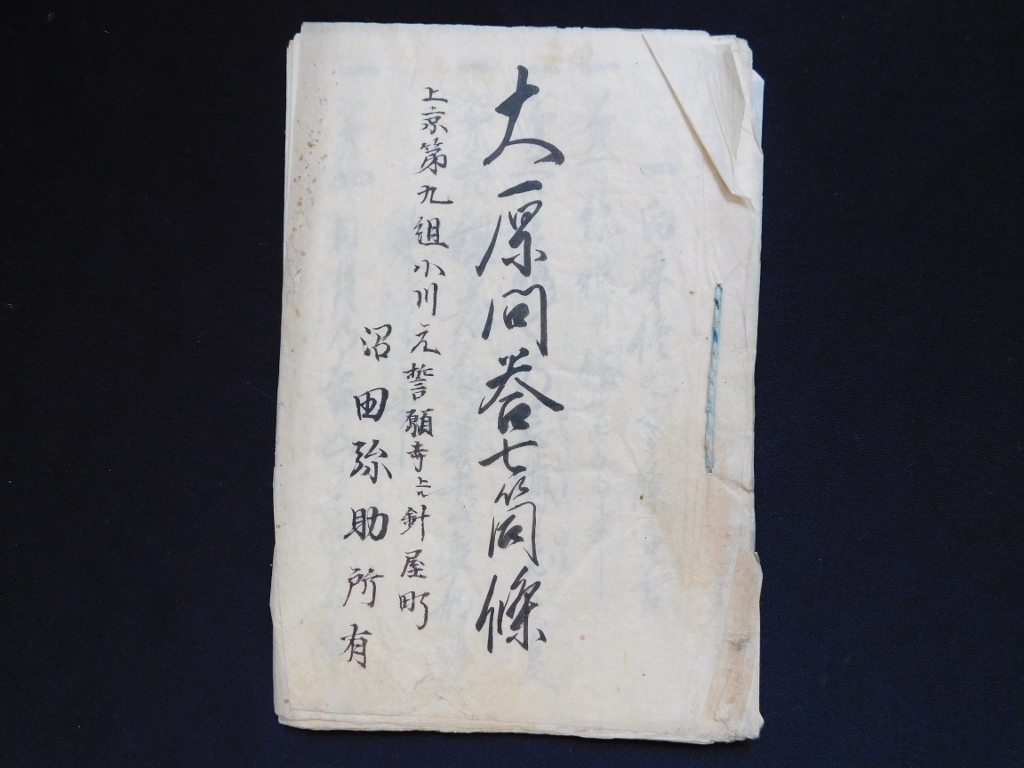 大原問答七箇條
上京第九組小川元誓願寺上ル針屋町
沼田弥助所有